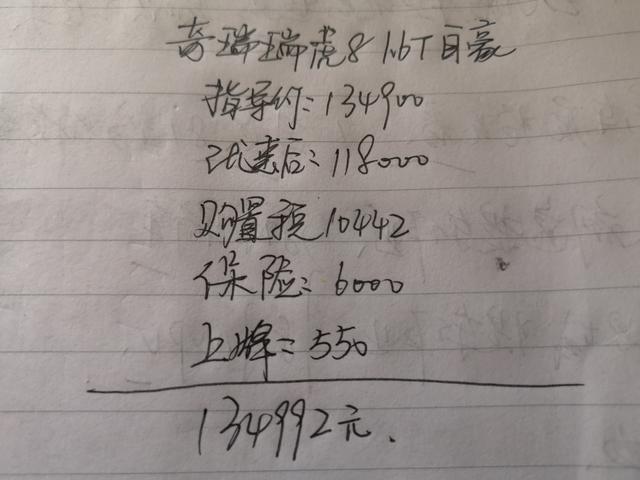 奇瑞瑞虎8 1.6T自豪
指导价:134900
优惠后:118000
购置税10442
保险:6000
上牌:550
134992元.